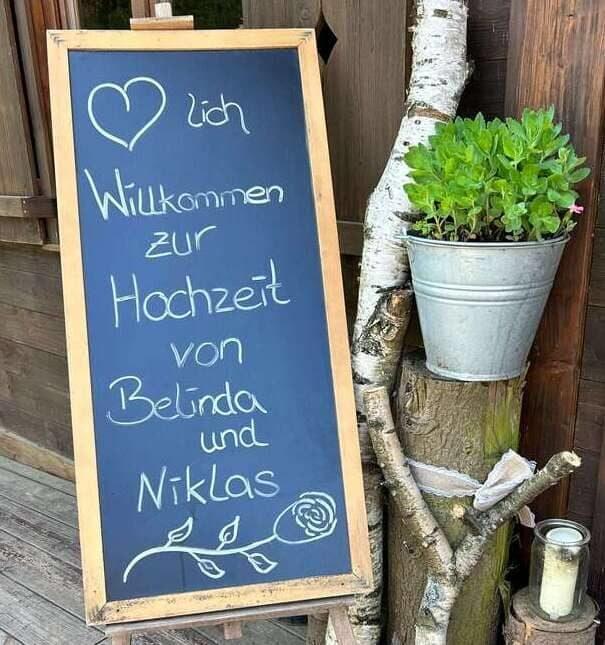 ♡ lich
Willkommen
zur
Hochzeit
von
Belinda
und
Niklas